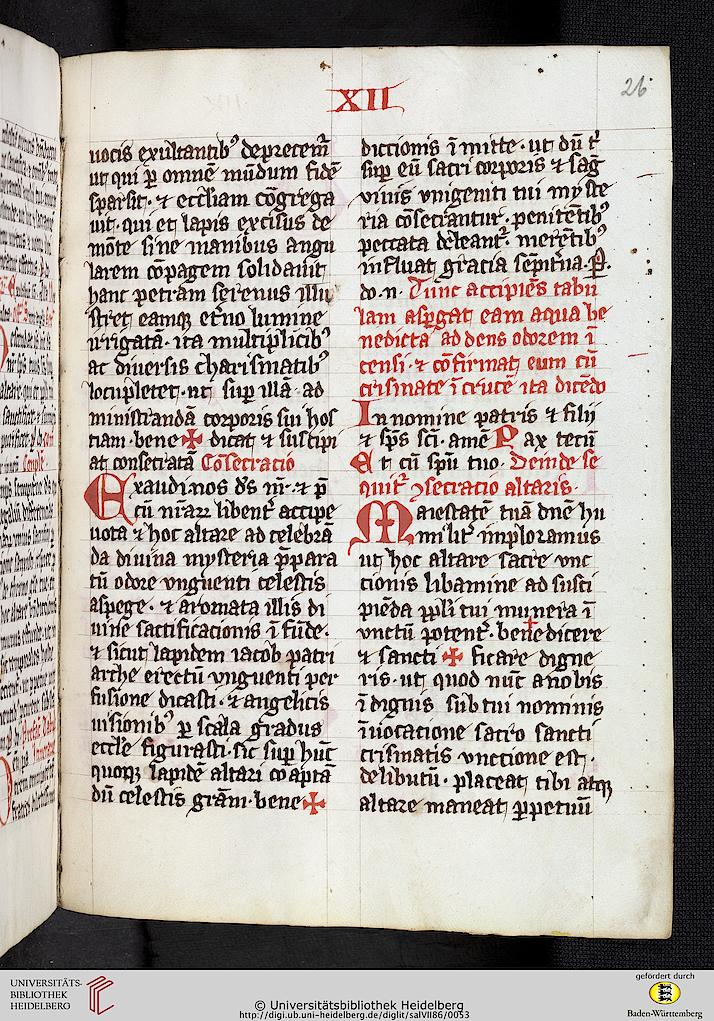 XII
26
uocis exultantib᾽ deprecem̄
ut qui ꝑ omnē mūdum fidē
sparsit · ⁊ eccl̄iam cōgrega
uit · qui et lapis excisus de
mōte sine manibus angu
larem cōpagem solidauit
hanc petram serenus illu
stret eamq; et̄no lumine
irrigata · ita multiplicib᾽
ac diuersis charismatib᾽
locupletet · ut suꝑ illā · ad
ministrandā corporis sui hos
tiam · bene ✠ dicat ⁊ suscipi
at consecratā Cōsecracio
Exaudi nos d̄s n̄r · ⁊ p̄
cū n̄raꝝ libent᾽ accipe
uota ⁊ hoc altare ad celebrā
da diuina mysteria p̄para
tū odore vnguenti celestis
asperge · ⁊ aromata illis di
uine sactificacionis īfūde ·
⁊ sicut lapidem iacob patri
arche erectū vnguenti per
fusione dicasti · ⁊ angelicis
uisionib᾽ ꝑ scala gradus
eccl̄e figurasti · sic suꝑ hūc
quoq; lapidē altari coaptā
dū celestis grām · bene ✠
dictionis īmitte · ut dū t᾽
suꝑ eū sacri corporis ⁊ sāg
vinis vnigeniti tui myste
ria cōsecrantur · penitētib᾽
peccata deleant᾽ · merētib᾽
influat gracia sēpit᾽na · P̄.
do · n · Tunc accipiēs tabu
lam aspergat eam aqua be
nedicta ad dens odorem ī
censi · ⁊ cōfirmat eum cū
crismate ī crucē ita dicēdo
In nomine patris ⁊ filij
⁊ sp̄s sc̄i · amē Pax tecū
Et cū sp̄u tuo · Deinde se
quit᾽ ꝯsecratio altaris ·
Maiestatē tuā dnē hu
milit᾽ imploramus
ut hoc altare sacre vnc
tionis libamine ad susci
piēda ppl̄i tui munera ī
vnctū potent᾽ · bene✝dicere
⁊ sancti ✠ ficare digne
ris · ut quod nūc a nobis
īdignis sub tui nominis
īuocatione sacro sancti
crismatis vnctione est ·
delibutū · placeat tibi atq;
altare maneat ꝑpetuū
UNIVERSITÄTS-
BIBLIOTHEK
HEIDELBERG
© Universitätsbibliothek Heidelberg
http://digi.ub.uni-heidelberg.de/diglit/salVII86/0053
gefördert durch
Baden-Württemberg